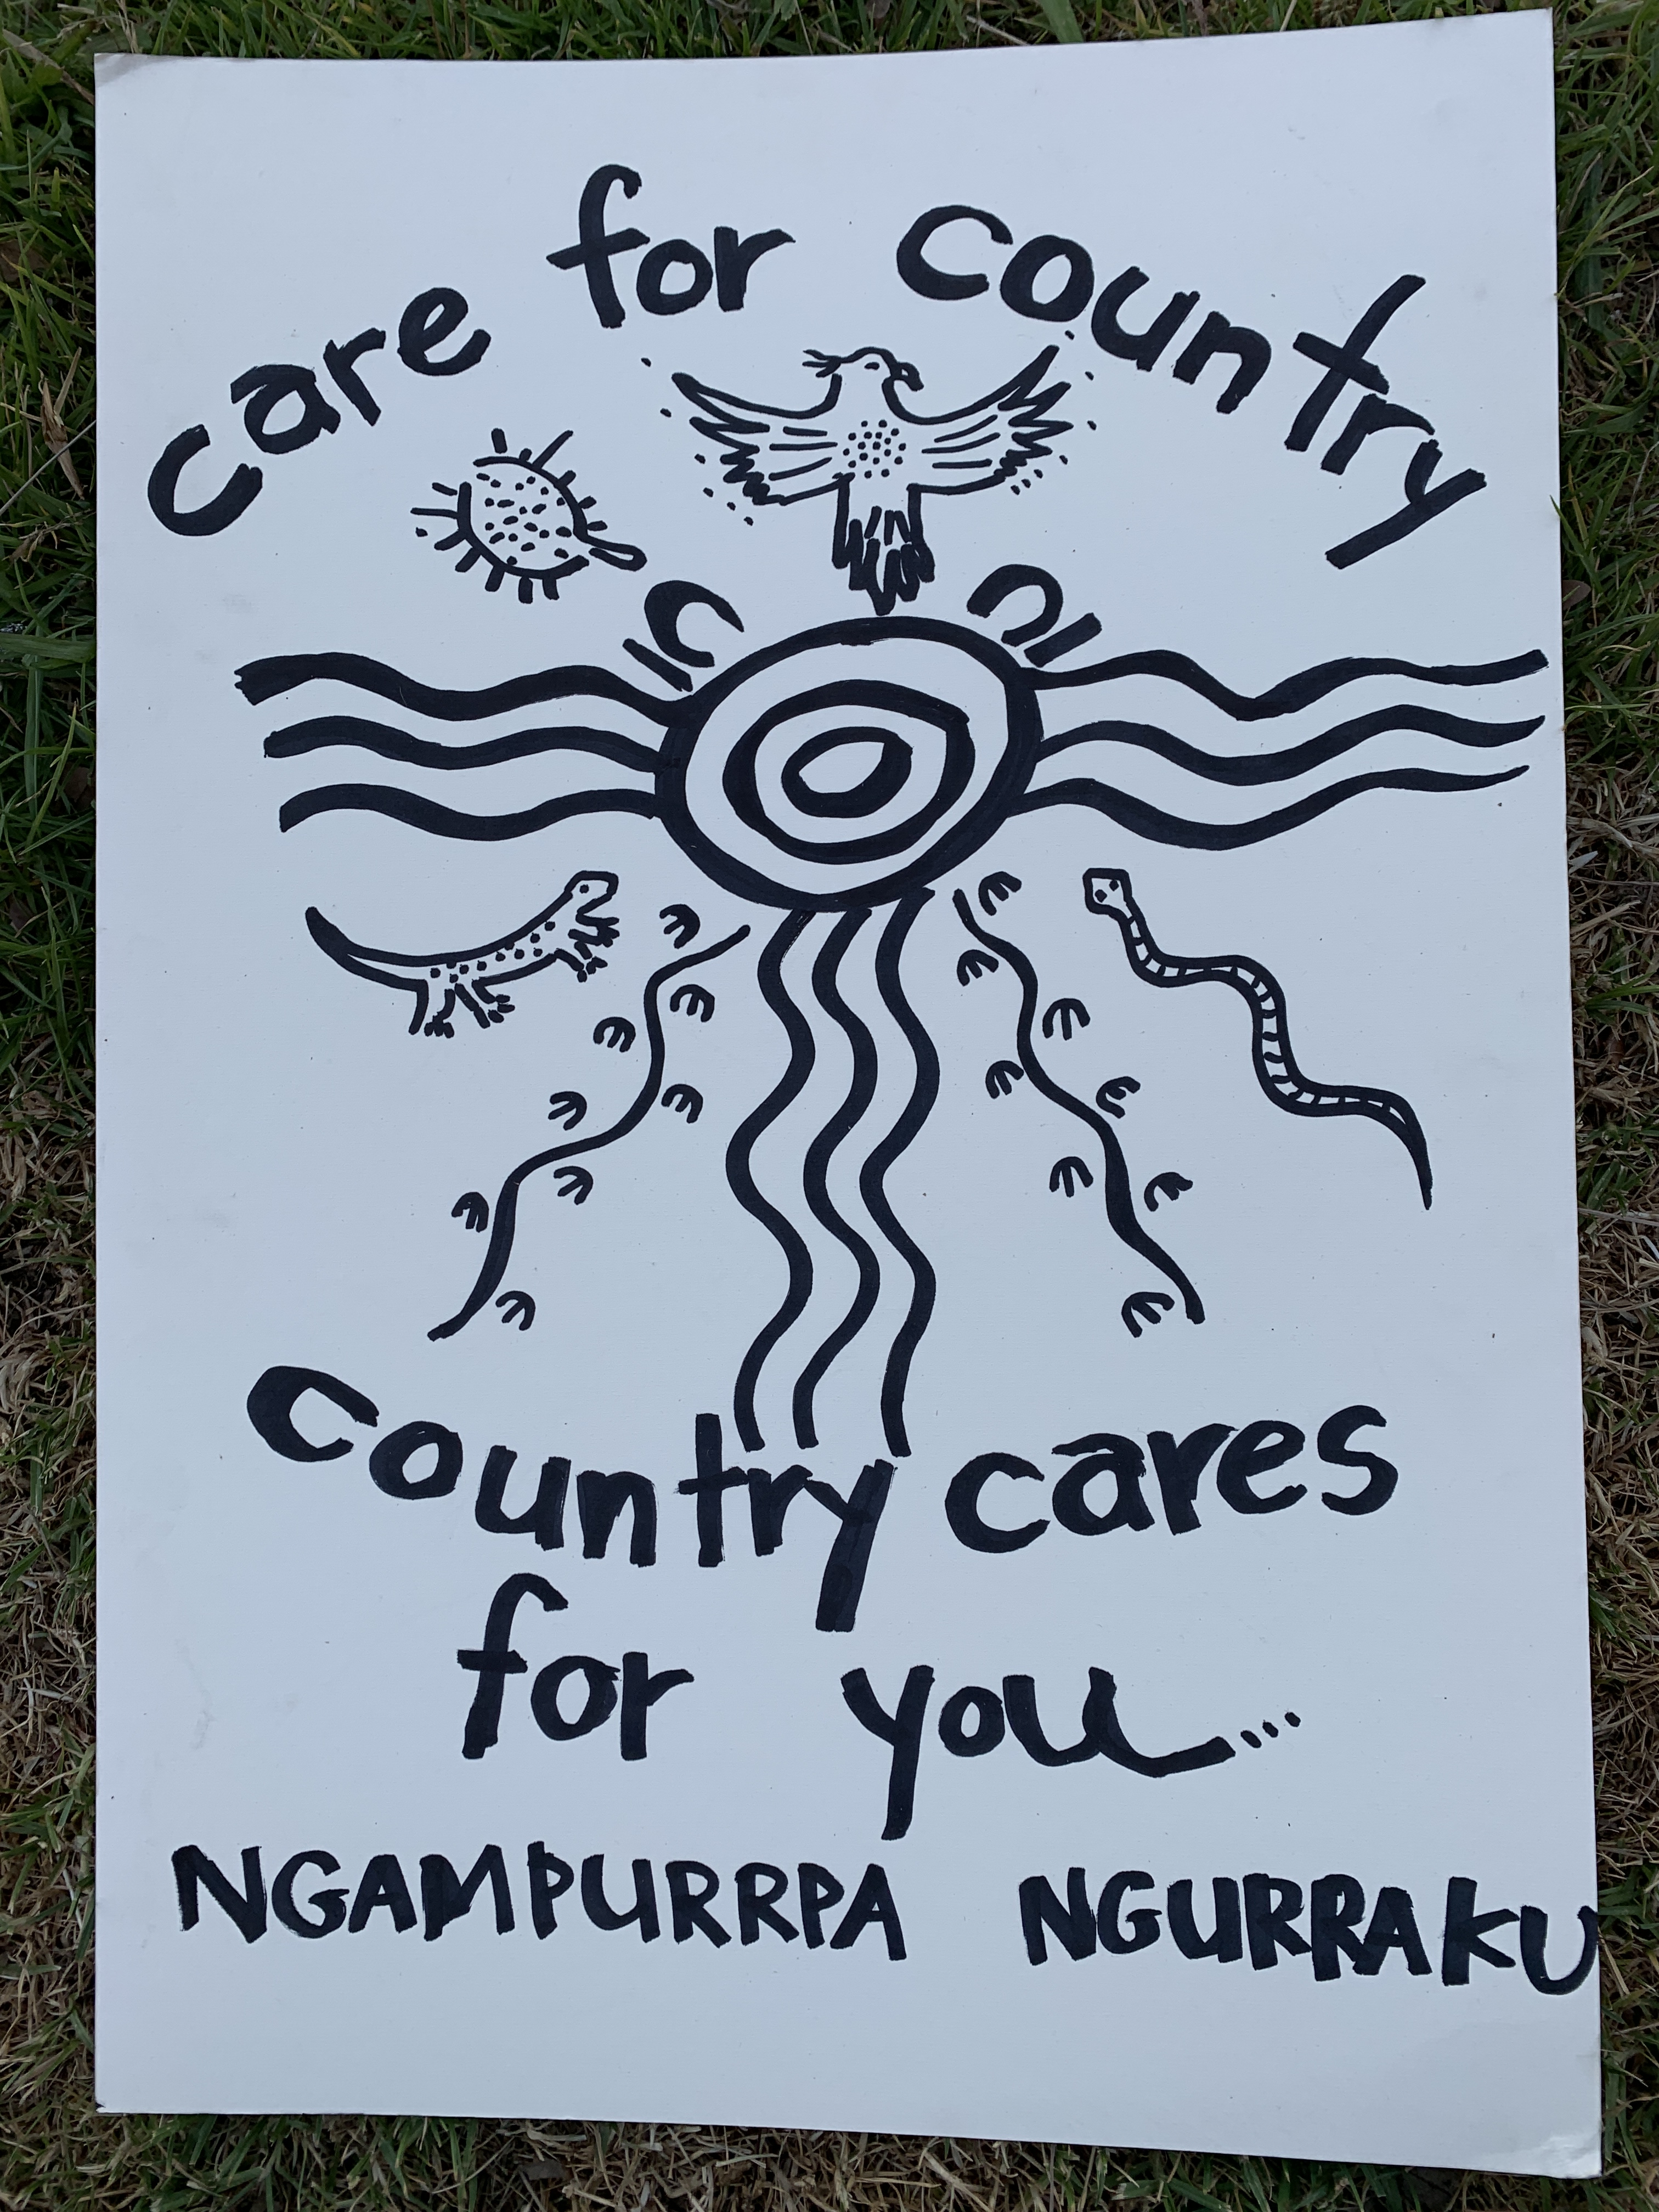 care for country
country cares
for you...
NGAMPURRPA NGURRAKU